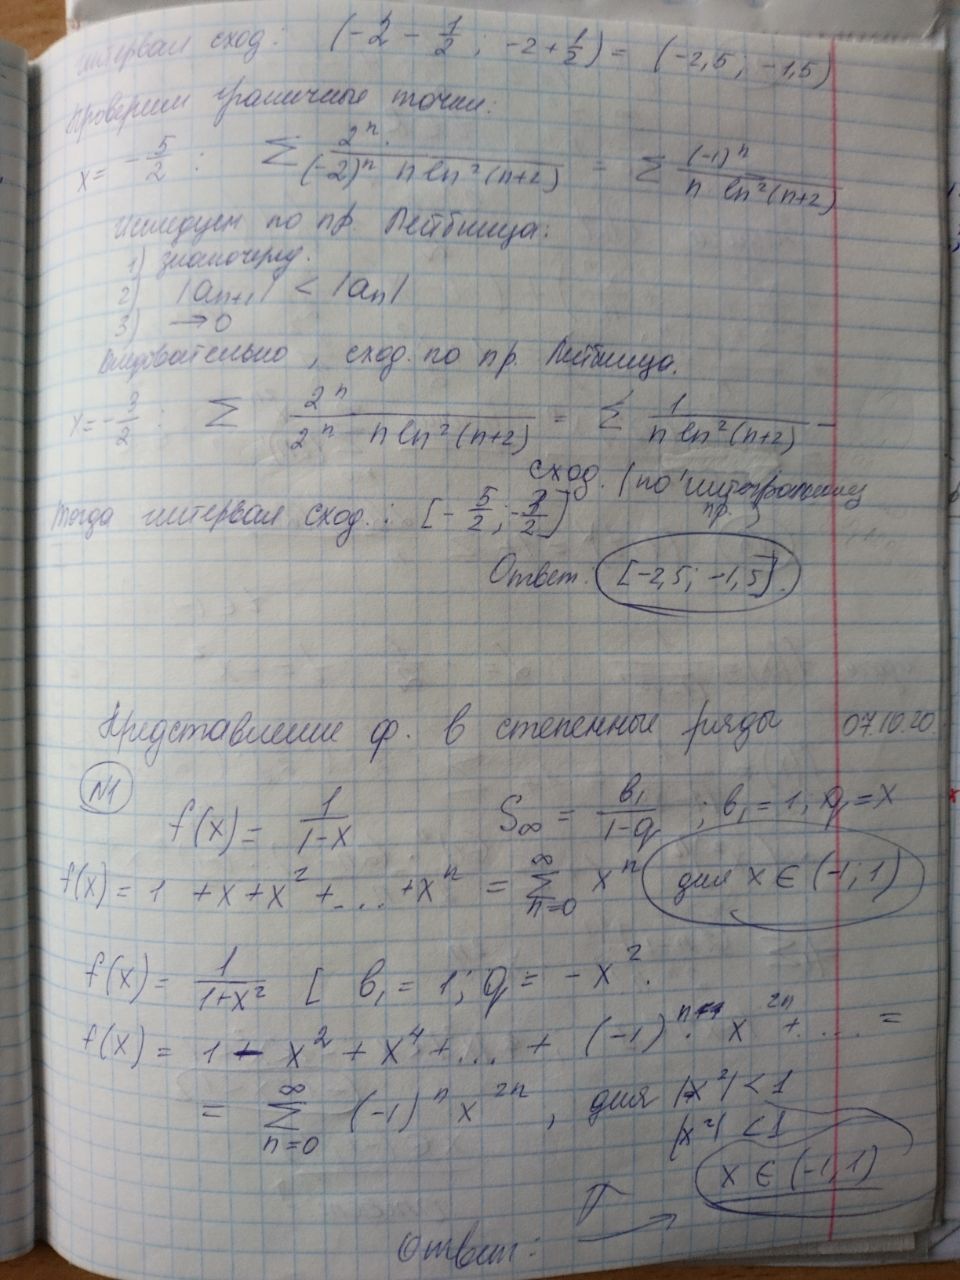 интервал сход: (-2 - 1/2 ; -2 + 1/2) = (-2,5 ; -1,5)
Проверим граничные точки:
x = -5/2 : Σ 2^n / ((-2)^n n ln²(n+2)) = Σ (-1)^n / (n ln²(n+2))
Исследуем по пр. Лейбница:
1) знакочеред.
2) |a_{n+1}| < |a_n|
3) → 0
Следовательно, сход. по пр. Лейбница.
x = -3/2 : Σ 2^n / (2^n n ln²(n+2)) = Σ 1 / (n ln²(n+2)) –
сход. (по интегральному
пр.)
Тогда интервал сход.: [-5/2 ; -3/2]
Ответ: [-2,5; -1,5].
Представление ф. в степенные ряды 07.10.20
N1
f(x) = 1/(1-x) S_∞ = b₁/(1-q) ; b₁ = 1, q = x
f(x) = 1 + x + x² + ... + x^n = Σ_{n=0}^{∞} x^n для x ∈ (-1; 1)
f(x) = 1/(1+x²) [ b₁ = 1; q = -x².
f(x) = 1 - x² + x⁴ + ... + (-1)^n · x^{2n} + ... =
= Σ_{n=0}^{∞} (-1)^n x^{2n} , для |x²| < 1
|x²| < 1
x ∈ (-1, 1)
Ответ: